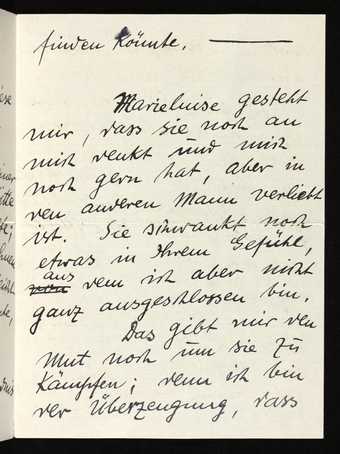 finden könnte. —
Marieluise gesteht
mir, dass sie noch an
mich denkt und mich
noch gern hat, aber in
den anderen Mann verliebt
ist. Sie schwankt noch
etwas in Ihrem Gefühl,
aus
dem ich aber nicht
ganz ausgeschlossen bin.
Das gibt mir den
Mut noch um sie zu
Kämpfen; denn ich bin
der Überzeugung, dass